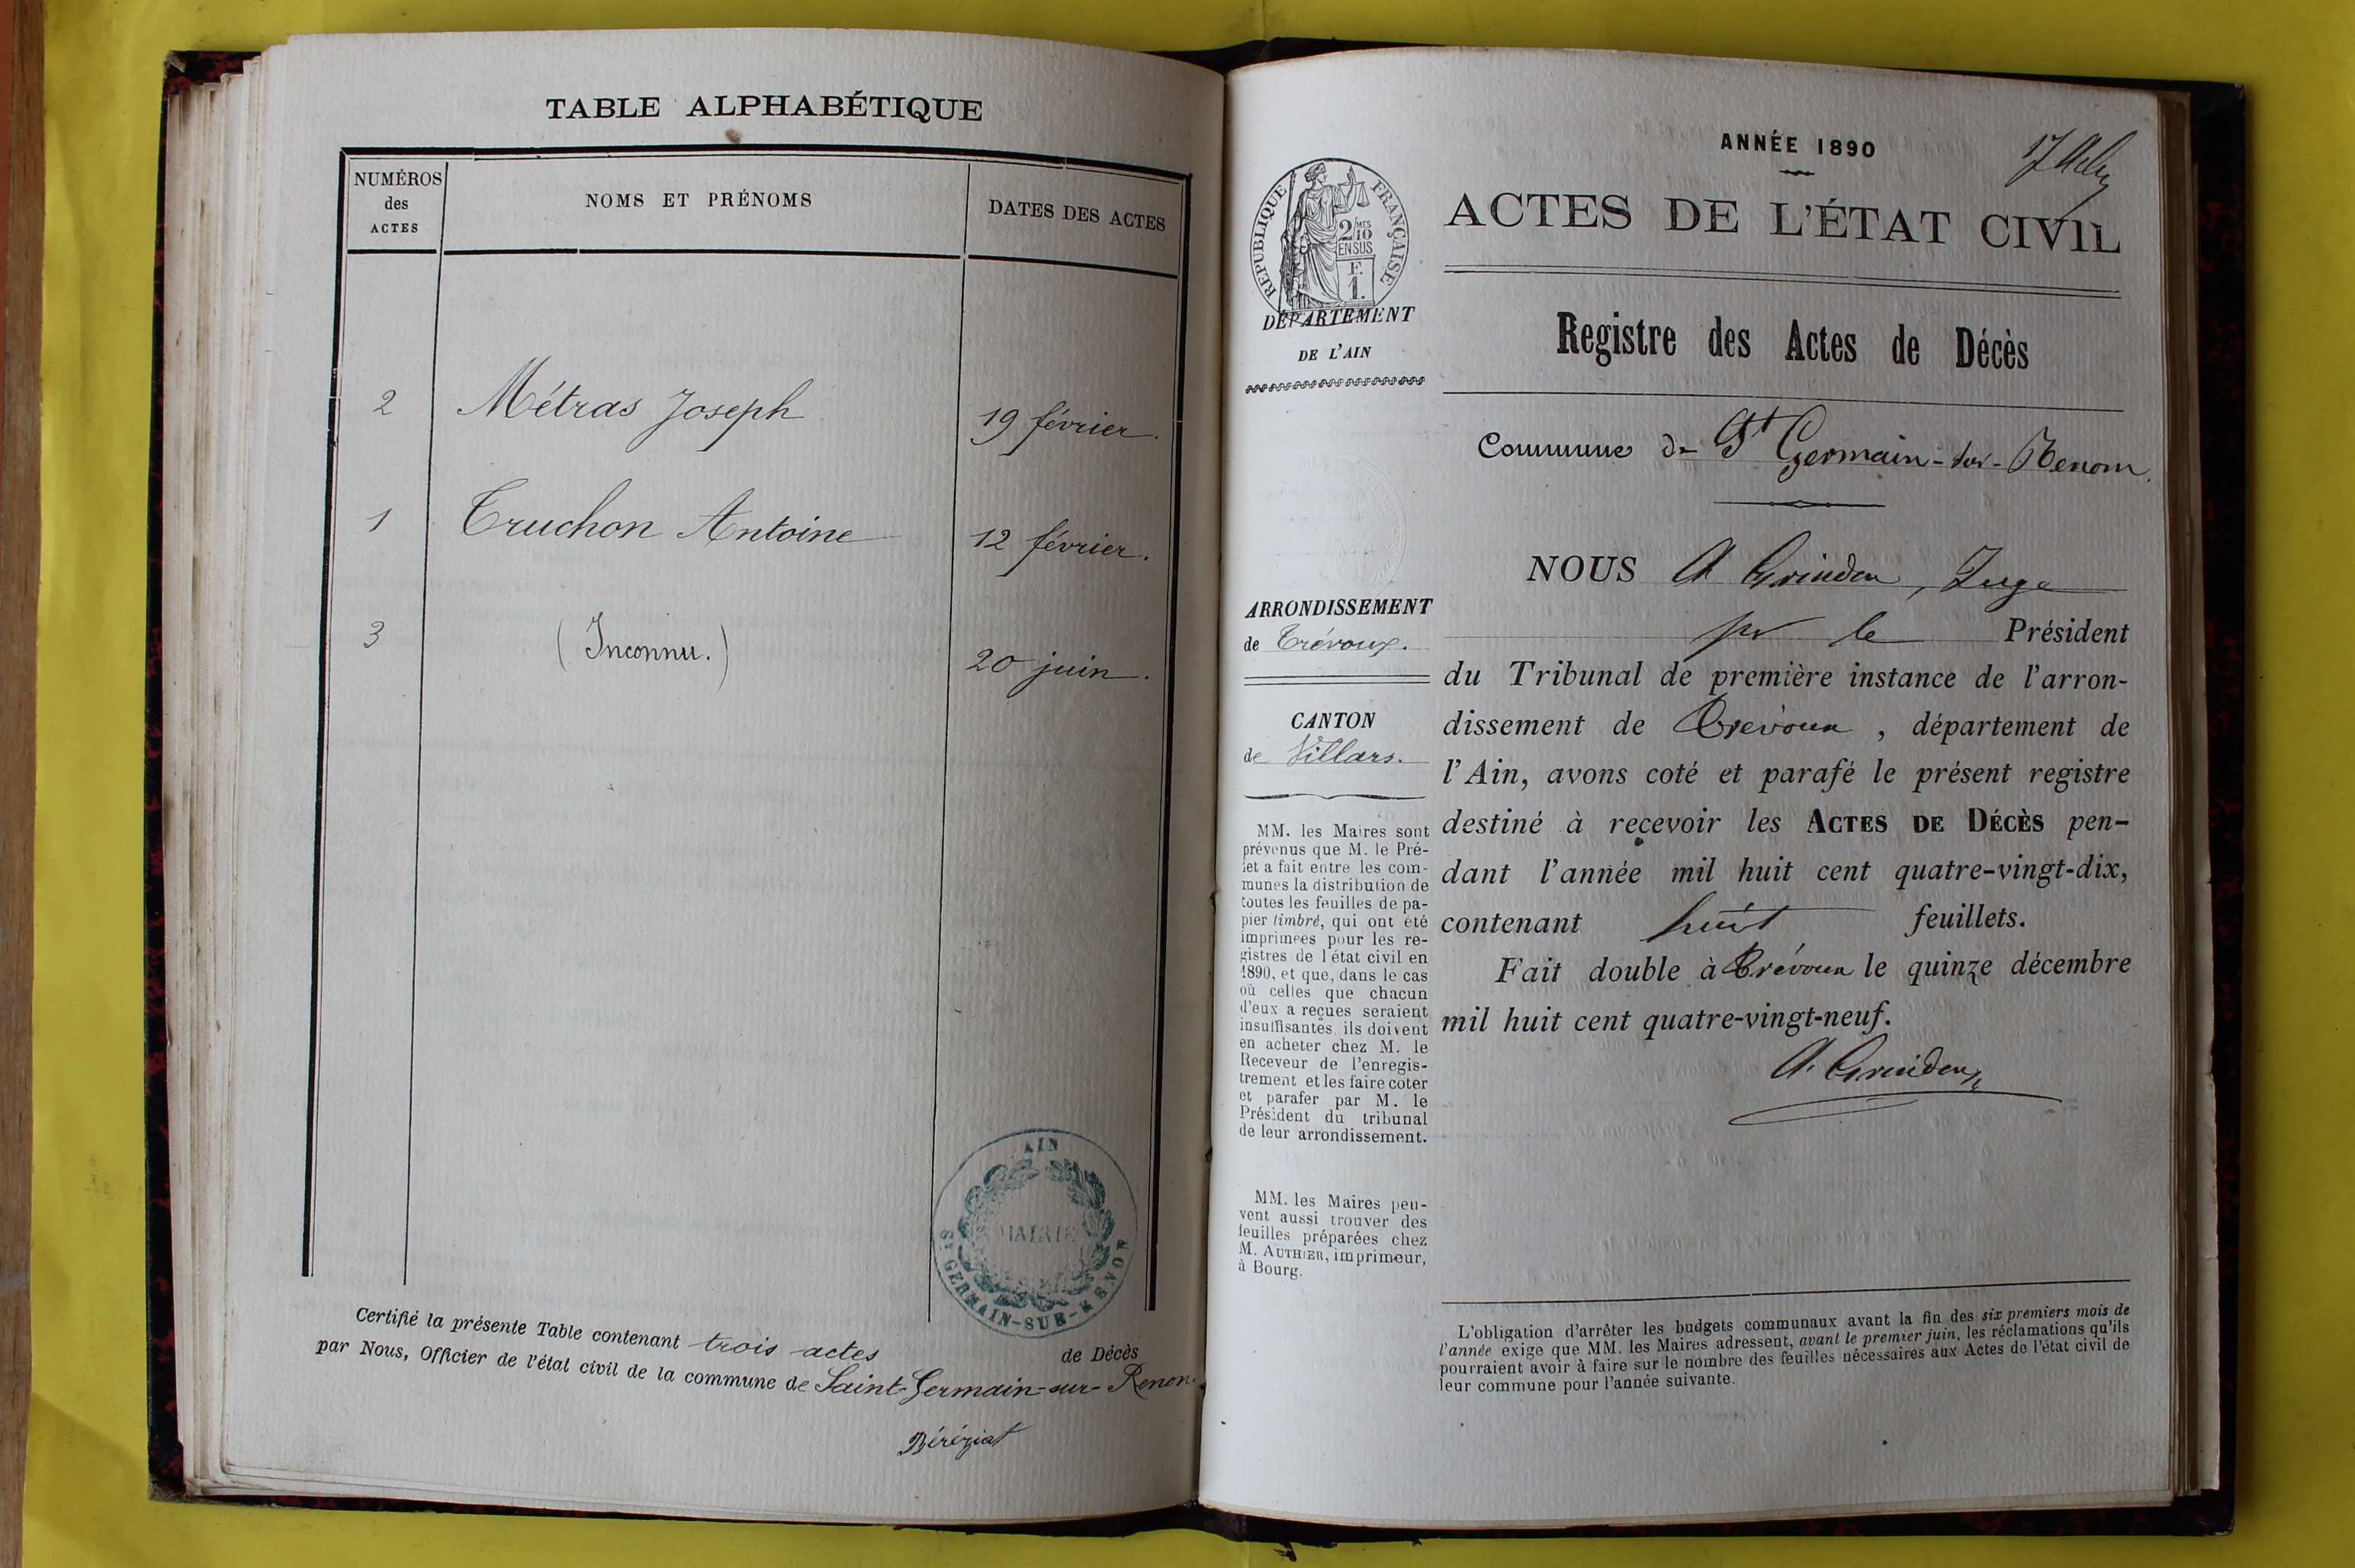 TABLE ALPHABÉTIQUE
NUMÉROS
des
ACTES
NOMS ET PRÉNOMS
DATES DES ACTES
2 Métras Joseph 19 février.
1 Truchon Antoine 12 février.
3 (Inconnu.) 20 juin.
AIN
MAIRIE
ST GERMAIN-SUR-RENON
Certifié la présente Table contenant trois actes de Décès
par Nous, Officier de l'état civil de la commune de Saint-Germain-sur-Renon
Béréziat
ANNÉE 1890
ACTES DE L'ÉTAT CIVIL
RÉPUBLIQUE FRANÇAISE
2/10 MES
EN SUS
F.
1.
DÉPARTEMENT
DE L'AIN
Registre des Actes de Décès
Commune de St Germain-sur-Renom
ARRONDISSEMENT
de Trévoux.
CANTON
de Villars.
MM. les Maires sont
prévenus que M. le Pré-
fet a fait entre les com-
munes la distribution de
toutes les feuilles de pa-
pier timbré, qui ont été
imprimées pour les re-
gistres de l'état civil en
1890, et que, dans le cas
où celles que chacun
d'eux a reçues seraient
insuffisantes, ils doivent
en acheter chez M. le
Receveur de l'enregis-
trement et les faire coter
et parafer par M. le
Président du tribunal
de leur arrondissement.
MM. les Maires peu-
vent aussi trouver des
feuilles préparées chez
M. AUTHIER, imprimeur,
à Bourg.
NOUS A Grindon, Juge
pr le Président
du Tribunal de première instance de l'arron-
dissement de Trévoux, département de
l'Ain, avons coté et parafé le présent registre
destiné à recevoir les ACTES DE DÉCÈS pen-
dant l'année mil huit cent quatre-vingt-dix,
contenant huit feuillets.
Fait double à Trévoux le quinze décembre
mil huit cent quatre-vingt-neuf.
A. Grindon
L'obligation d'arrêter les budgets communaux avant la fin des six premiers mois de
l'année exige que MM. les Maires adressent, avant le premier juin, les réclamations qu'ils
pourraient avoir à faire sur le nombre des feuilles nécessaires aux Actes de l'état civil de
leur commune pour l'année suivante.